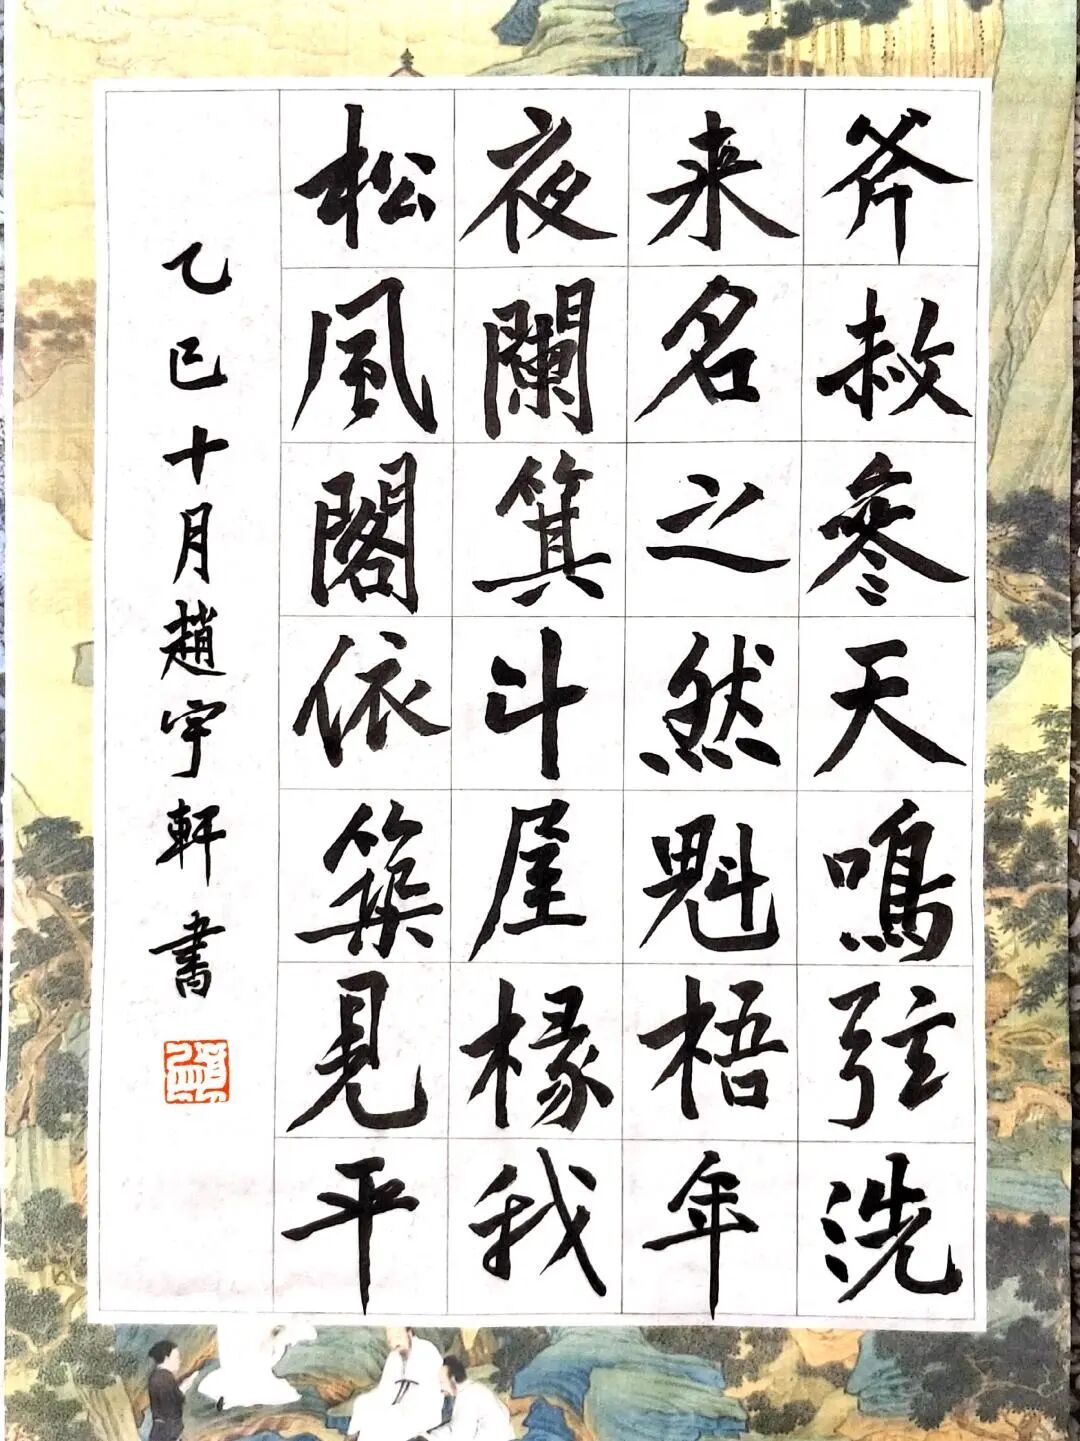 斧赦參天鳴弦洗
来名之然魁梧年
夜闌箕斗屋椽我
松風閣依築見平
乙巳十月趙宇軒書